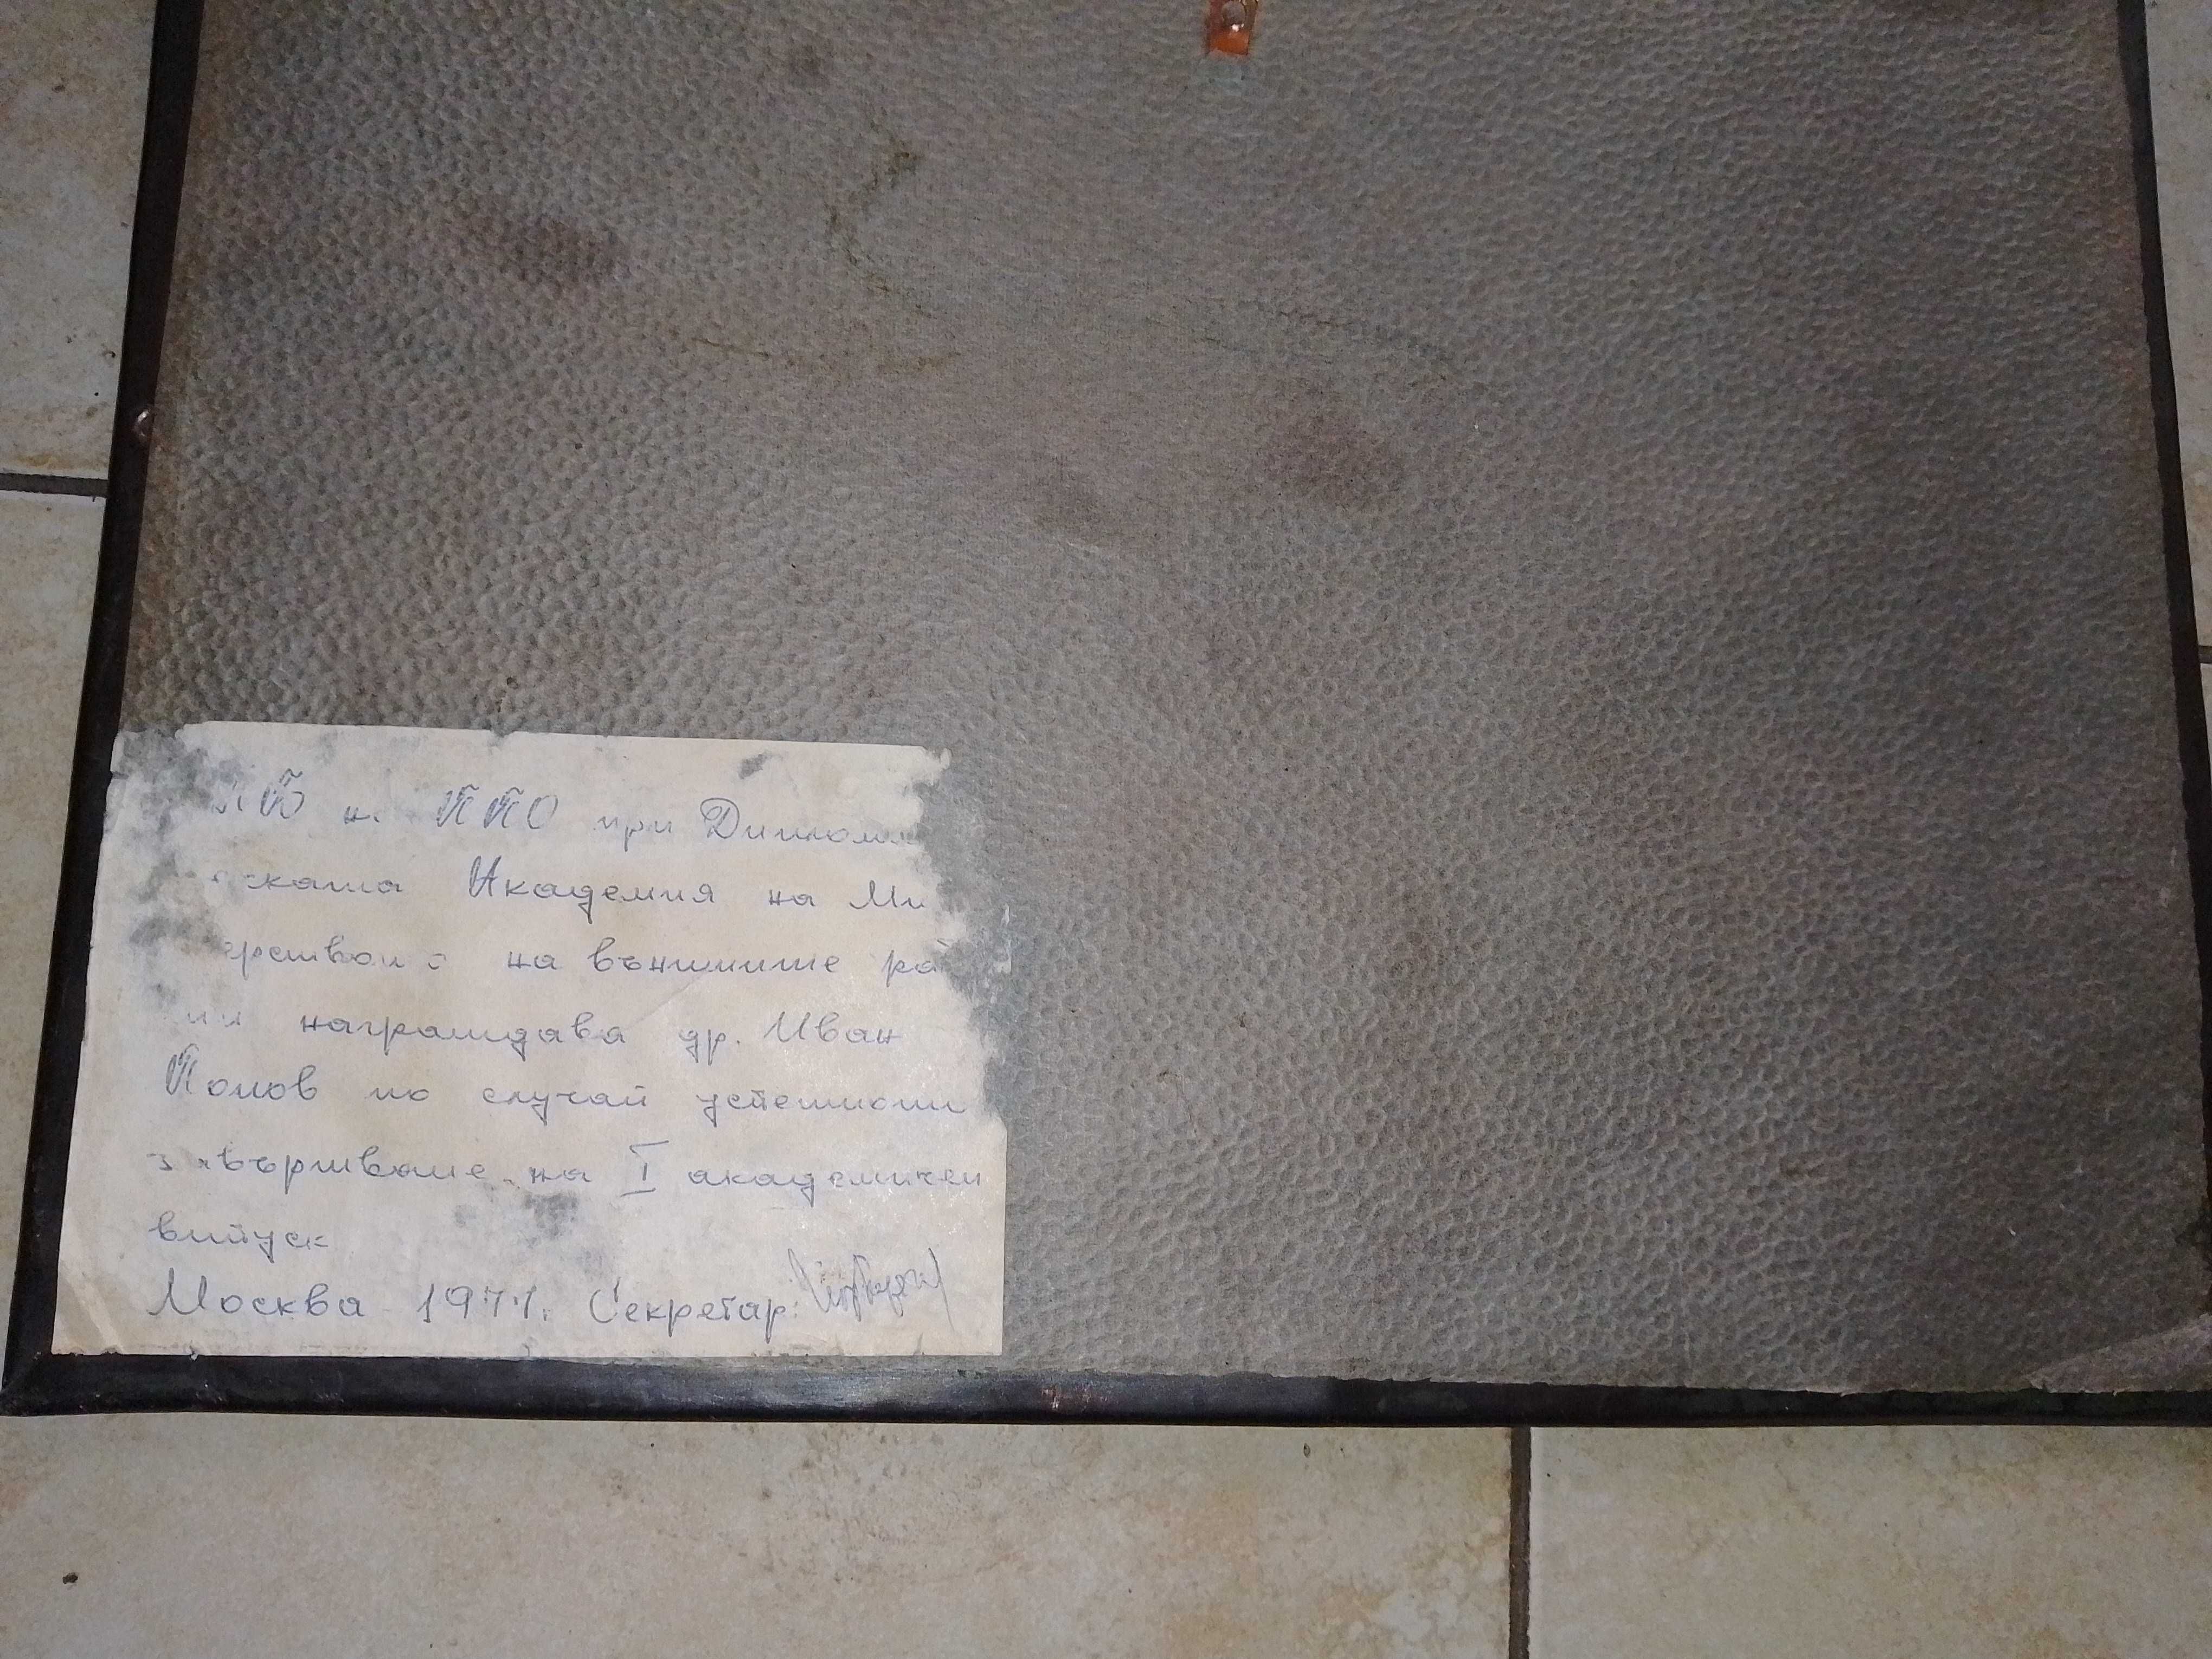 ПБ н. ППО при Диплом
ската Академия на Ми
ерството на външните ра
ни награждава др. Иван
Попов по случай успешното
завършване на I академичен
випуск
Москва 1977. Секретар: